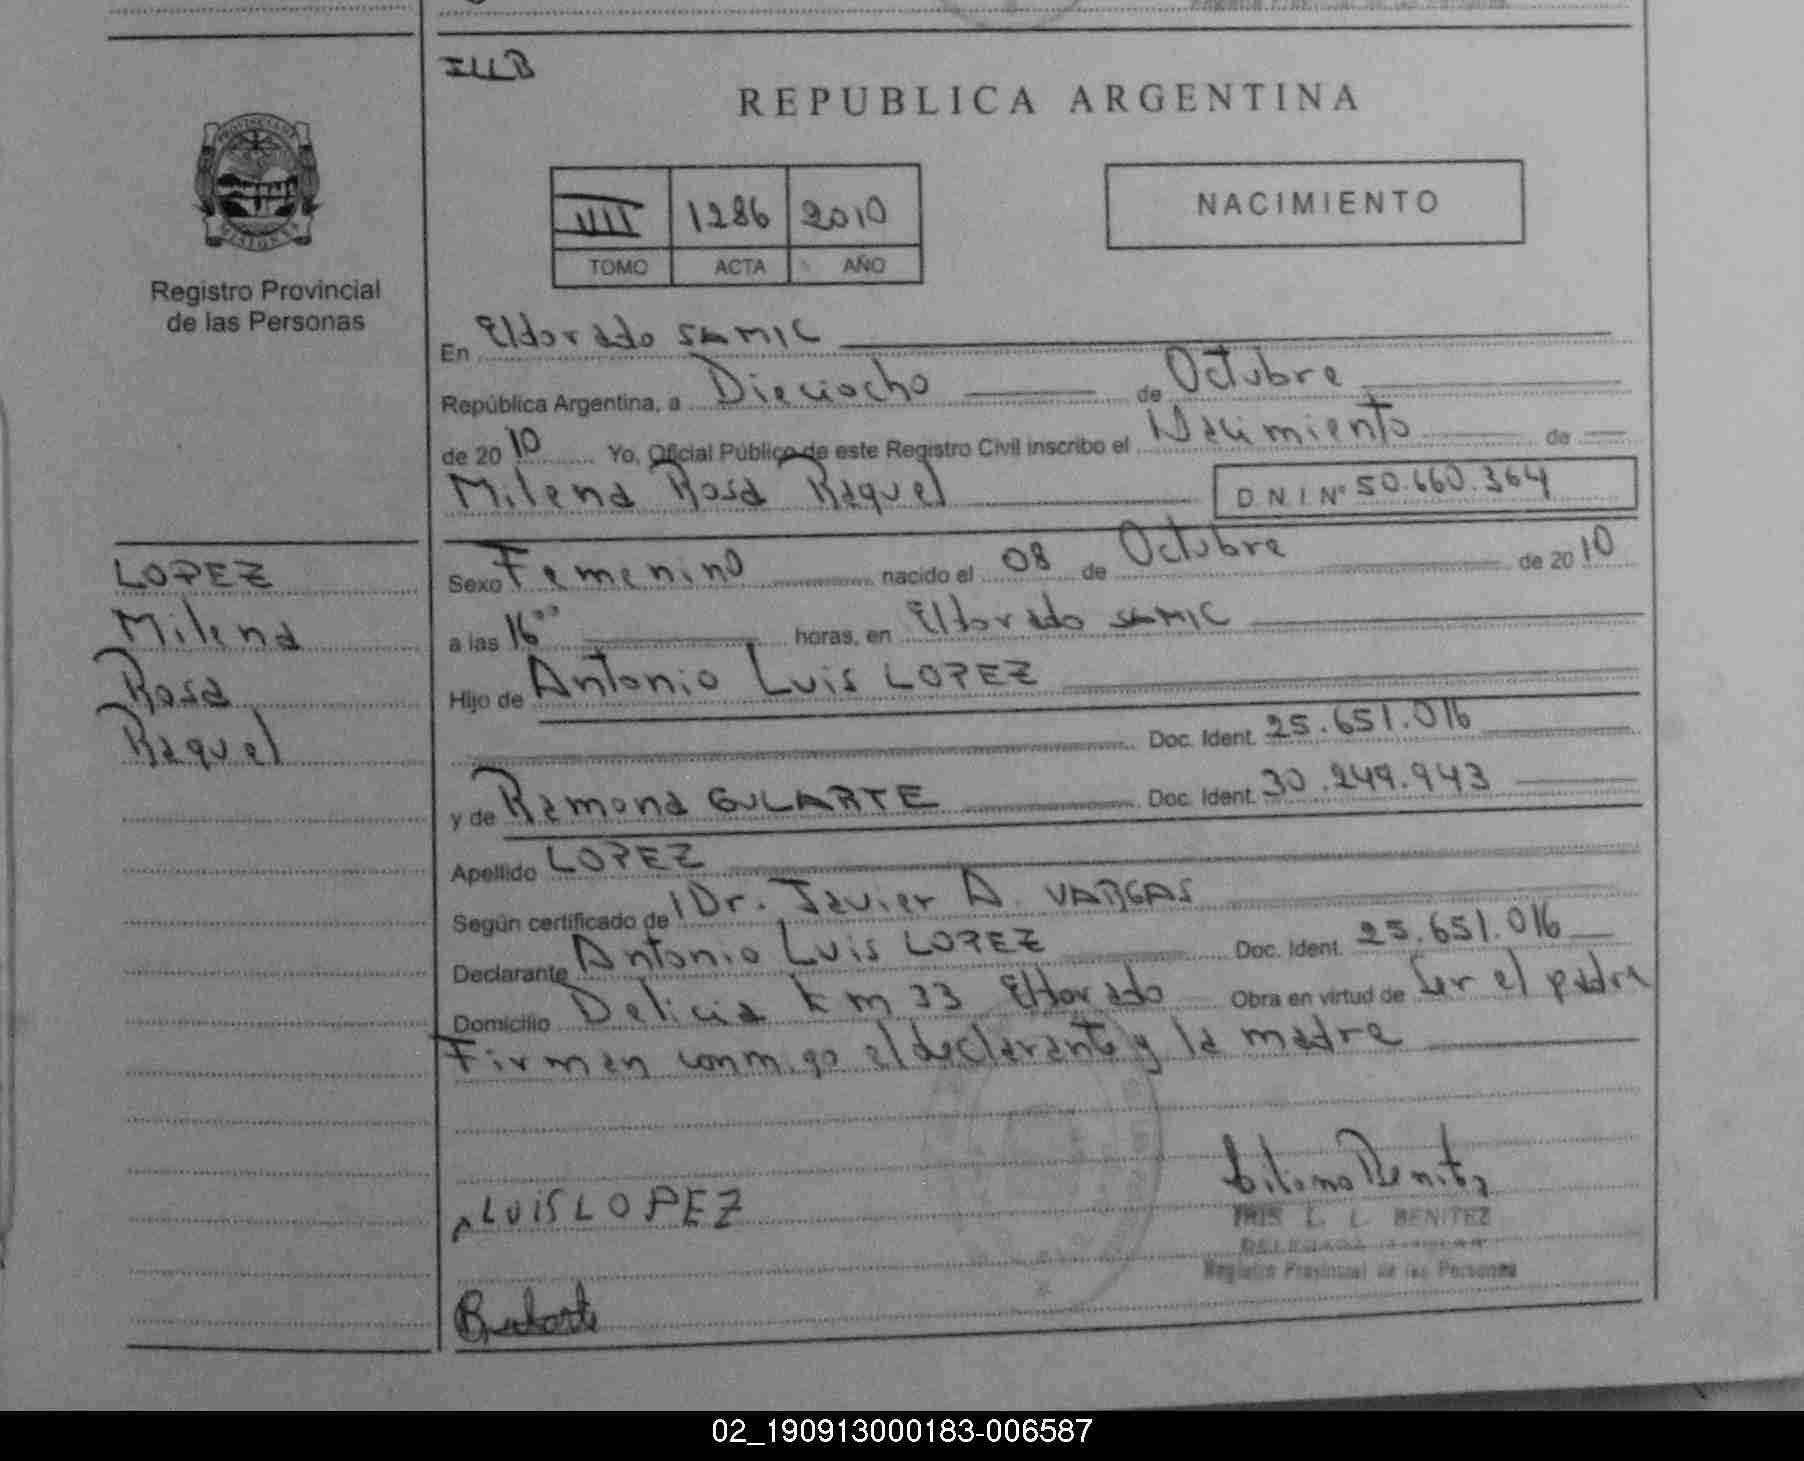 ILLB
REPUBLICA ARGENTINA
VIII 1286 2010
TOMO ACTA AÑO
NACIMIENTO
Registro Provincial
de las Personas
En Eldorado SAMIC
República Argentina, a Dieciocho de Octubre
de 2010 Yo, Oficial Público de este Registro Civil inscribo el Nacimiento de
Milena Rosa Raquel D.N.I. Nº 50.660.364
LOPEZ
Milena
Rosa
Raquel
Sexo Femenino nacido el 08 de Octubre de 2010
a las 16⁰⁰ horas, en Eldorado SAMIC
Hijo de Antonio Luis LOPEZ
Doc. Ident. 25.651.016
y de Ramona GULARTE Doc. Ident. 30.249.943
Apellido LOPEZ
Según certificado de Dr. Javier A. VARGAS
Declarante Antonio Luis LOPEZ Doc. Ident. 25.651.016
Domicilio Delicia Km 33 Eldorado Obra en virtud de Ser el padre
Firman conmigo el declarante y la madre
LUIS LOPEZ
IRIS L. L. BENITEZ
Registro Provincial de las Personas
02_190913000183-006587